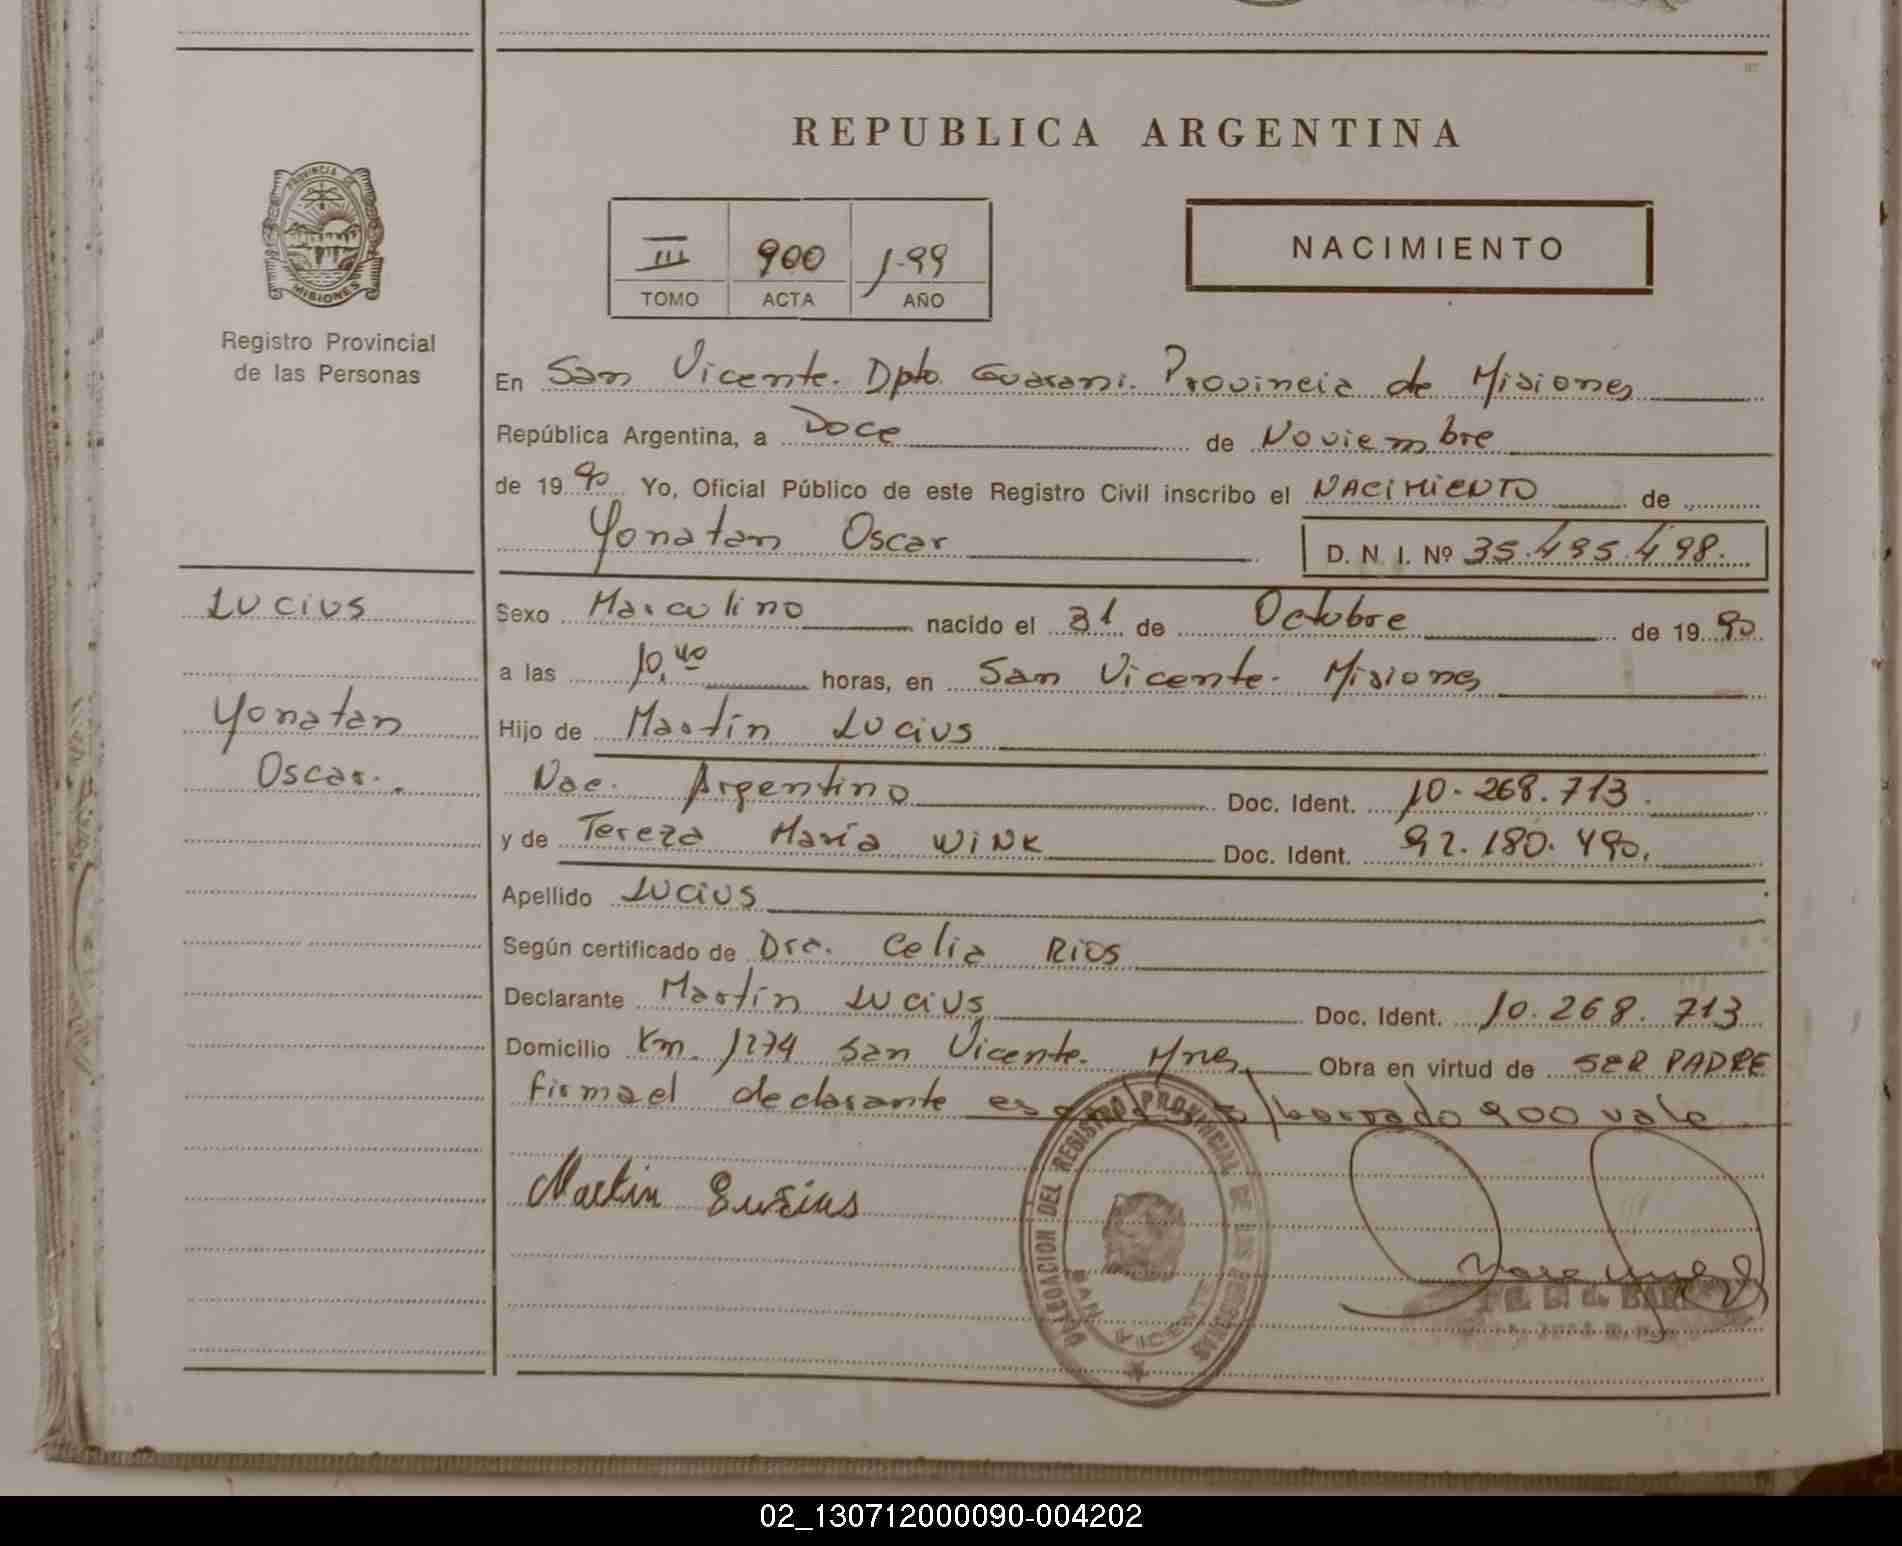 REPUBLICA ARGENTINA
PROVINCIA DE
MISIONES
Registro Provincial
de las Personas
III 900 1.99
TOMO ACTA AÑO
NACIMIENTO
En San Vicente. Dpto. Guarani. Provincia de Misiones
República Argentina, a Doce de Noviembre
de 19 90 Yo, Oficial Público de este Registro Civil inscribo el NACIMIENTO de
Yonatan Oscar
D. N. I. Nº 35.495.498.
Lucius
Yonatan
Oscar.
Sexo Masculino nacido el 31 de Octubre de 19 90
a las 10,40 horas, en San Vicente. Misiones
Hijo de Martín Lucius
Nac. Argentino Doc. Ident. 10.268.713.
y de Tereza María WINK Doc. Ident. 92.180.490.
Apellido Lucius
Según certificado de Dra. Celia Rios
Declarante Martín Lucius Doc. Ident. 10.268.713
Domicilio Km. 1274 San Vicente. Mnes Obra en virtud de SER PADRE
firma el declarante borrado 900 vale
Martin Lucius
DELEGACION DEL REGISTRO PROVINCIAL DE LAS PERSONAS
SAN VICENTE
02_130712000090-004202